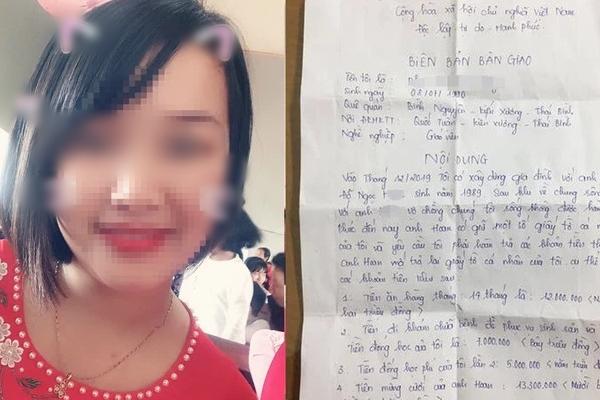 Cộng hòa xã hội chủ nghĩa Việt Nam
Độc lập tự do - Hạnh phúc
BIÊN BẢN BÀN GIAO
Tên tôi là :
Sinh ngày : 03/071 1990
Quê quán : Bình Nguyên - Kiến Xương - Thái Bình
Nơi ĐKHKTT : Quốc Tuấn - kiến xương - Thái Bình
Nghề nghiệp : Giáo viên
NỘI DUNG
Vào Tháng 12/2019 Tôi có xây dựng gia đình với anh
Đỗ Ngọc sinh năm 1989. Sau khi về chung sống
với anh vợ chồng chúng tôi sống không được hạnh
đến nay anh Hoan có giữ một số giấy tờ cá
của tôi và yêu cầu tôi phải hoàn trả các khoản tiền
anh Hoan mới trả lại giấy tờ cá nhân của tôi cụ thể
các khoản tiền như sau
1. Tiền ăn hàng tháng 14 tháng là : 12.000.000
hai triệu đồng)
2. Tiền đi khám chữa bệnh để phục vụ sinh sản và
Tiền đóng học của tôi là : 7.000.000 ( bảy triệu đồng)
3. Tiền đóng học phí của tôi lần 2: 5.000.000 (năm triệu
4 Tiền mừng cưới của anh Hoan : 13.300.000 (Mười